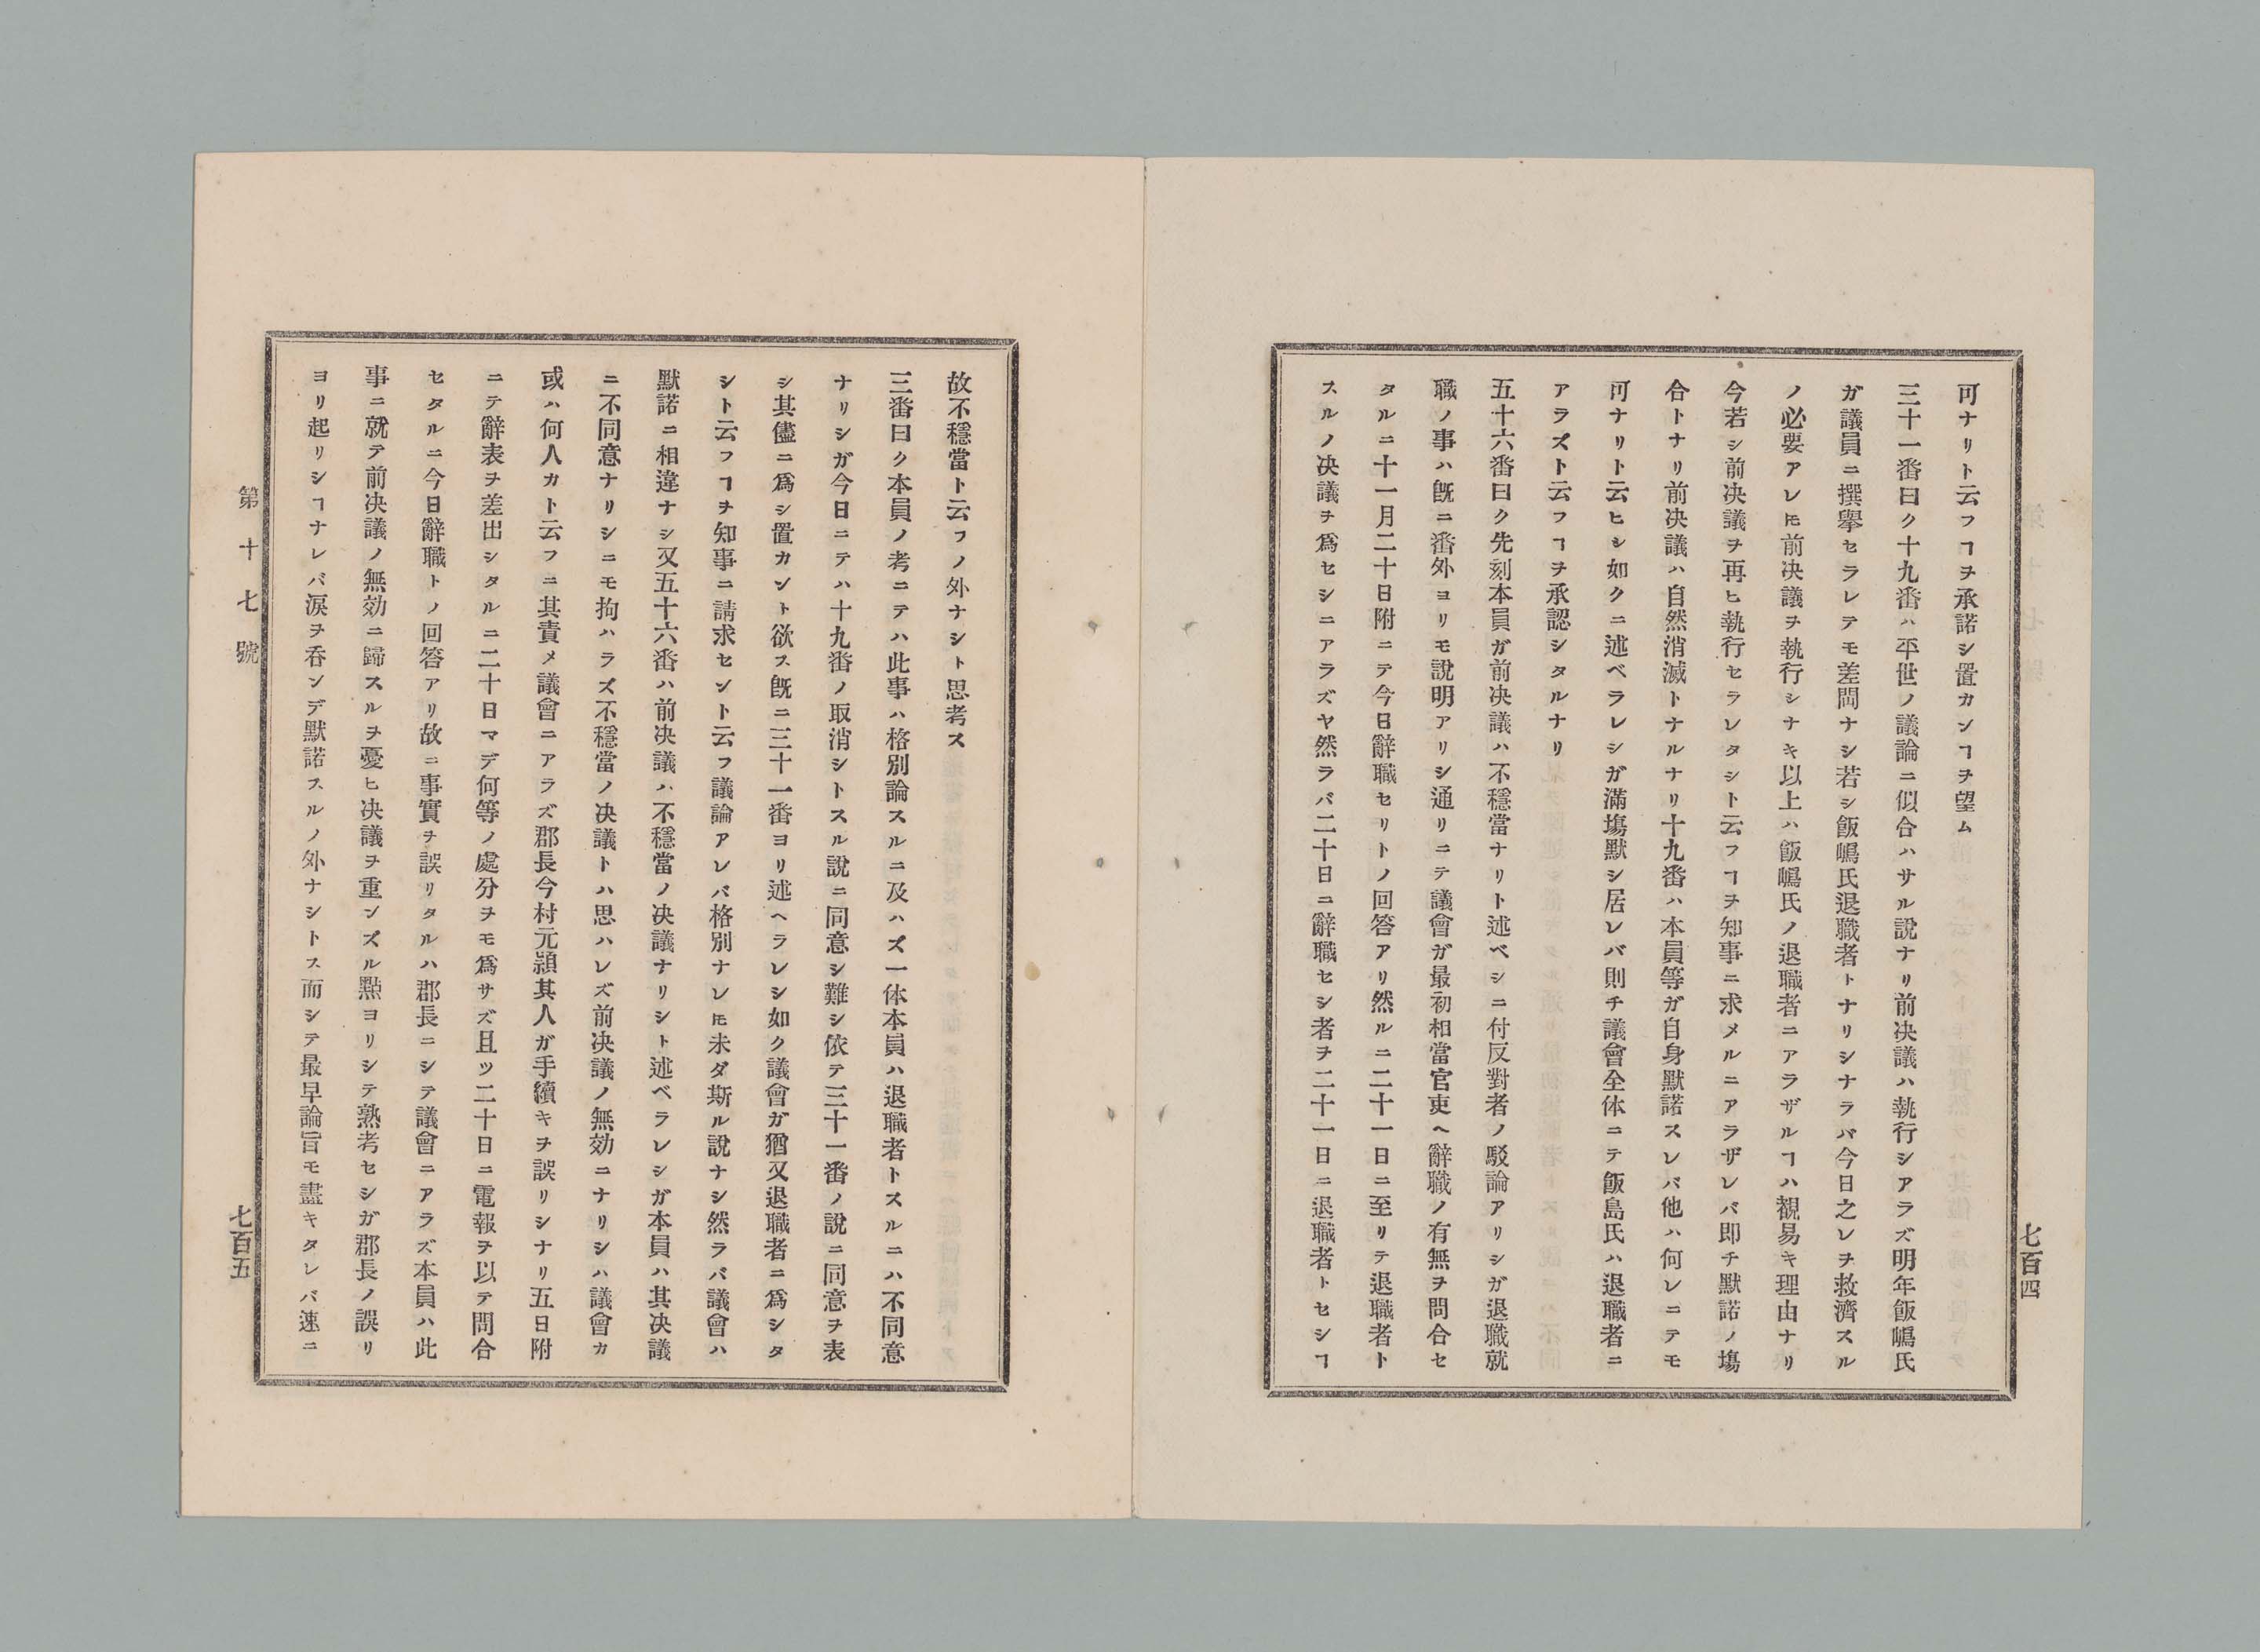 七百四
可ナリト云フヿヲ承諾シ置カンヿヲ望ム
三十一番曰ク十九番ハ平世ノ議論ニ似合ハサル說ナリ前决議ハ執行シアラズ明年飯嶋氏
ガ議員ニ撰擧セラレテモ差閊ナシ若シ飯嶋氏退職者トナリシナラバ今日之レヲ救濟スル
ノ必要アレ𪜈前决議ヲ執行シナキ以上ハ飯嶋氏ノ退職者ニアラザルヿハ観易キ理由ナリ
今若シ前决議ヲ再ヒ執行セラレタシト云フヿヲ知事ニ求メルニアラザレバ即チ默諾ノ塲
合トナリ前决議ハ自然消滅トナルナリ十九番ハ本員等ガ自身默諾スレバ他ハ何レニテモ
可ナリト云ヒシ如クニ述ベラレシガ滿塲默シ居レバ則チ議會全体ニテ飯島氏ハ退職者ニ
アラズト云フヿヲ承認シタルナリ
五十六番曰ク先刻本員ガ前决議ハ不穩當ナリト述ベシニ付反對者ノ駁論アリシガ退職就
職ノ事ハ旣ニ番外ヨリモ說明アリシ通リニテ議會ガ最初相當官吏ヘ辭職ノ有無ヲ問合セ
タルニ十一月二十日附ニテ今日辭職セリトノ回答アリ然ルニ二十一日ニ至リテ退職者ト
スルノ决議ヲ爲セシニアラズヤ然ラバ二十日ニ辭職セシ者ヲ二十一日ニ退職者トセシヿ
故不穩當ト云フノ外ナシト思考ス
三番曰ク本員ノ考ニテハ此事ハ格別論スルニ及ハズ一体本員ハ退職者トスルニハ不同意
ナリシガ今日ニテハ十九番ノ取消シトスル說ニ同意シ難シ依テ三十一番ノ說ニ同意ヲ表
シ其儘ニ爲シ置カント欲ス旣ニ三十一番ヨリ述ヘラレシ如ク議會ガ猶又退職者ニ爲シタ
シト云フヿヲ知事ニ請求セント云フ議論アレバ格別ナレ𪜈未ダ斯ル說ナシ然ラバ議會ハ
默諾ニ相違ナシ又五十六番ハ前决議ハ不穩當ノ决議ナリシト述ベラレシガ本員ハ其决議
ニ不同意ナリシニモ拘ハラズ不穩當ノ决議トハ思ハレズ前决議ノ無効ニナリシハ議會カ
或ハ何人カト云フニ其責メ議會ニアラズ郡長今村元頴其人ガ手續キヲ誤リシナリ五日附
ニテ辭表ヲ差出シタルニ二十日マデ何等ノ處分ヲモ爲サズ且ツ二十日ニ電報ヲ以テ問合
セタルニ今日辭職トノ回答アリ故ニ事實ヲ誤リタルハ郡長ニシテ議會ニアラズ本員ハ此
事ニ就テ前决議ノ無効ニ歸スルヲ憂ヒ决議ヲ重ンズル點ヨリシテ熟考セシガ郡長ノ誤リ
ヨリ起リシヿナレバ涙ヲ呑ンデ默諾スルノ外ナシトス而シテ最早論旨モ盡キタレバ速ニ
第十七號
七百五